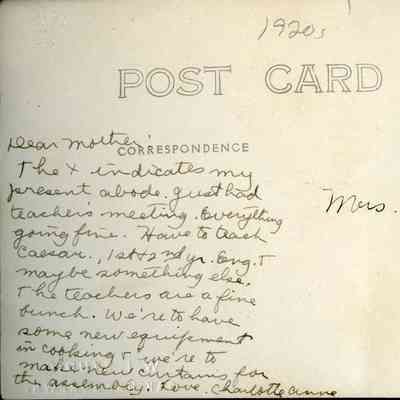 1920s
POST CARD
Dear Mother,
CORRESPONDENCE
The x indicates my
present abode. Just had
teachers meeting. Everything
going fine. Have to teach
Caesar., 1st & 2nd yr. Eng. &
maybe something else.
The teachers are a fine
bunch. We're to have
some new equipment
in cooking & we're to
make new curtains for
the assembly. Love. Charlotte Anne
Mrs.